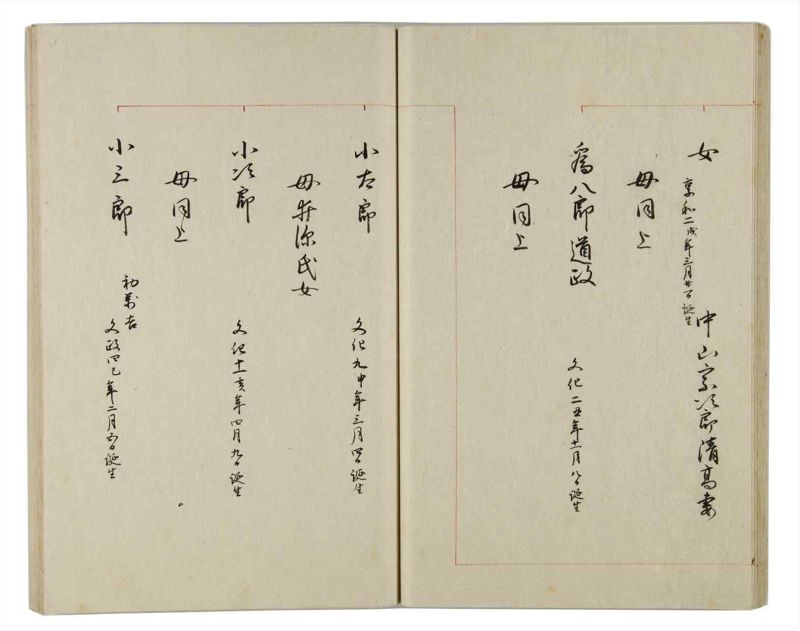 女
享和二戌年三月廿一日誕生
中山宗次郎清高妻
母同上
為八郎道政
文化二丑年十一月八日誕生
母同上
小太郎
文化九申年三月四日誕生
母井深氏女
小次郎
文化十二亥年四月九日誕生
母同上
小三郎
初万吉
文政四巳年二月五日誕生